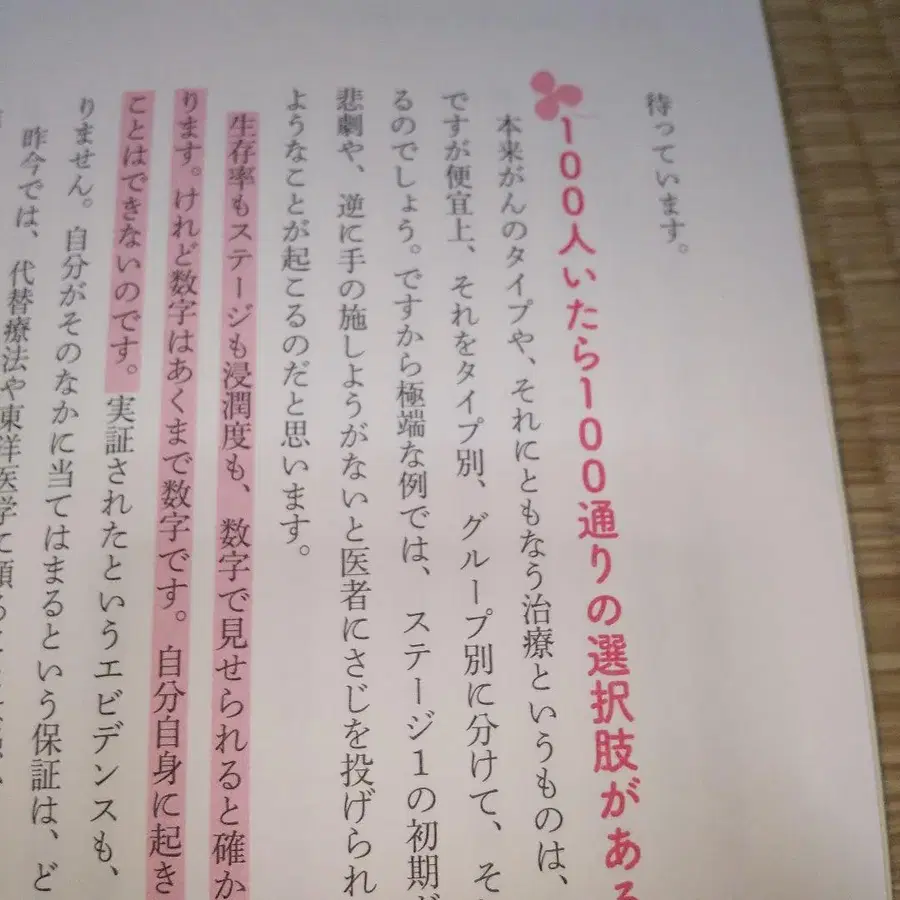 待っています。
100人いたら100通りの選択肢がある
本来がんのタイプや、それにともなう治療というものは、
ですが便宜上、それをタイプ別、グループ別に分けて、そ
るのでしょう。ですから極端な例では、ステージ1の初期が
悲劇や、逆に手の施しようがないと医者にさじを投げられ
ようなことが起こるのだと思います。
生存率もステージも浸潤度も、数字で見せられると確か
ります。けれど数字はあくまで数字です。自分自身に起き
ことはできないのです。実証されたというエビデンスも、
りません。自分がそのなかに当てはまるという保証は、ど
昨今では、代替療法や東洋医学で